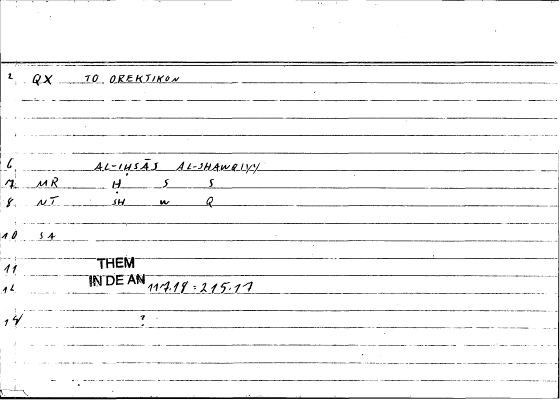 2 QX TO OREKTIKON
6 AL-IḤSĀS AL-SHAWQIYY
7 MR Ḥ S S
8 NT SH W Q
10 SA
11 THEM
12 IN DE AN 117.18 = 215.17
14 ?